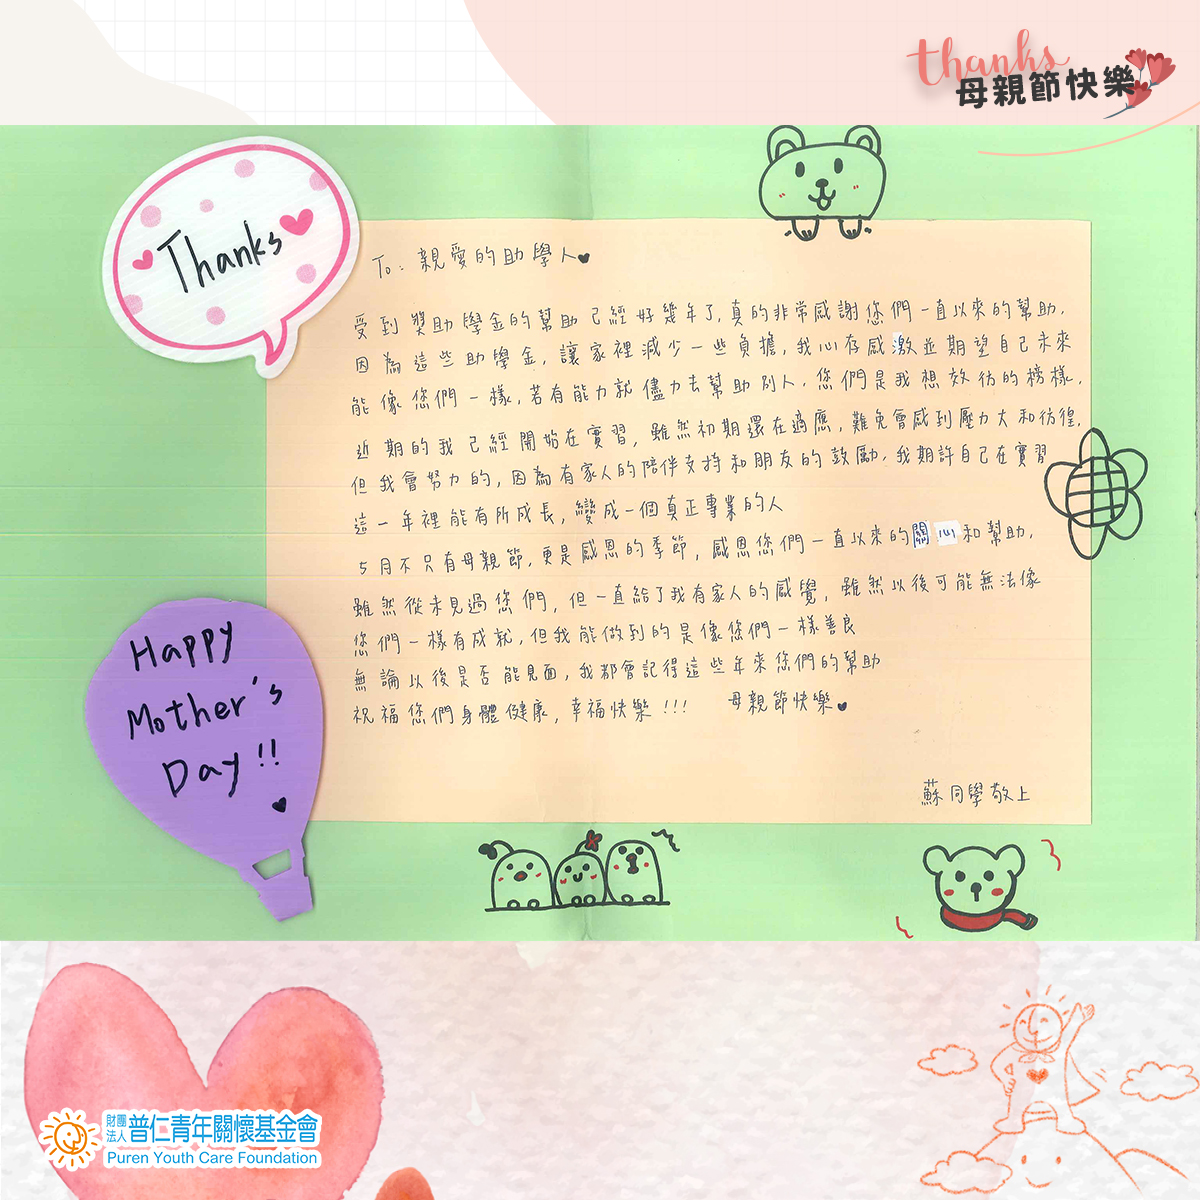 thanks
母親節快樂
Thanks
To：親愛的助學人
受到獎助學金的幫助已經好幾年了,真的非常感謝您們一直以來的幫助.
因為這些助學金,讓家裡減少一些負擔,我心存感激並期望自己未來
能像您們一樣,若有能力就儘力去幫助別人,您們是我想效仿的榜樣.
近期的我已經開始在實習,雖然初期還在適應,難免會感到壓力大和彷徨,
但我會努力的,因為有家人的陪伴支持和朋友的鼓勵,我期許自己在實習
這一年裡能有所成長,變成一個真正專業的人
5月不只有母親節,更是感恩的季節,感恩您們一直以來的關心和幫助,
雖然從未見過您們,但一直給了我有家人的感覺,雖然以後可能無法像
您們一樣有成就,但我能做到的是像您們一樣善良
無論以後是否能見面,我都會記得這些年來您們的幫助
祝福您們身體健康,幸福快樂!!! 母親節快樂
蘇同學敬上
Happy
Mother's
Day!!
財團法人 普仁青年關懷基金會
Puren Youth Care Foundation